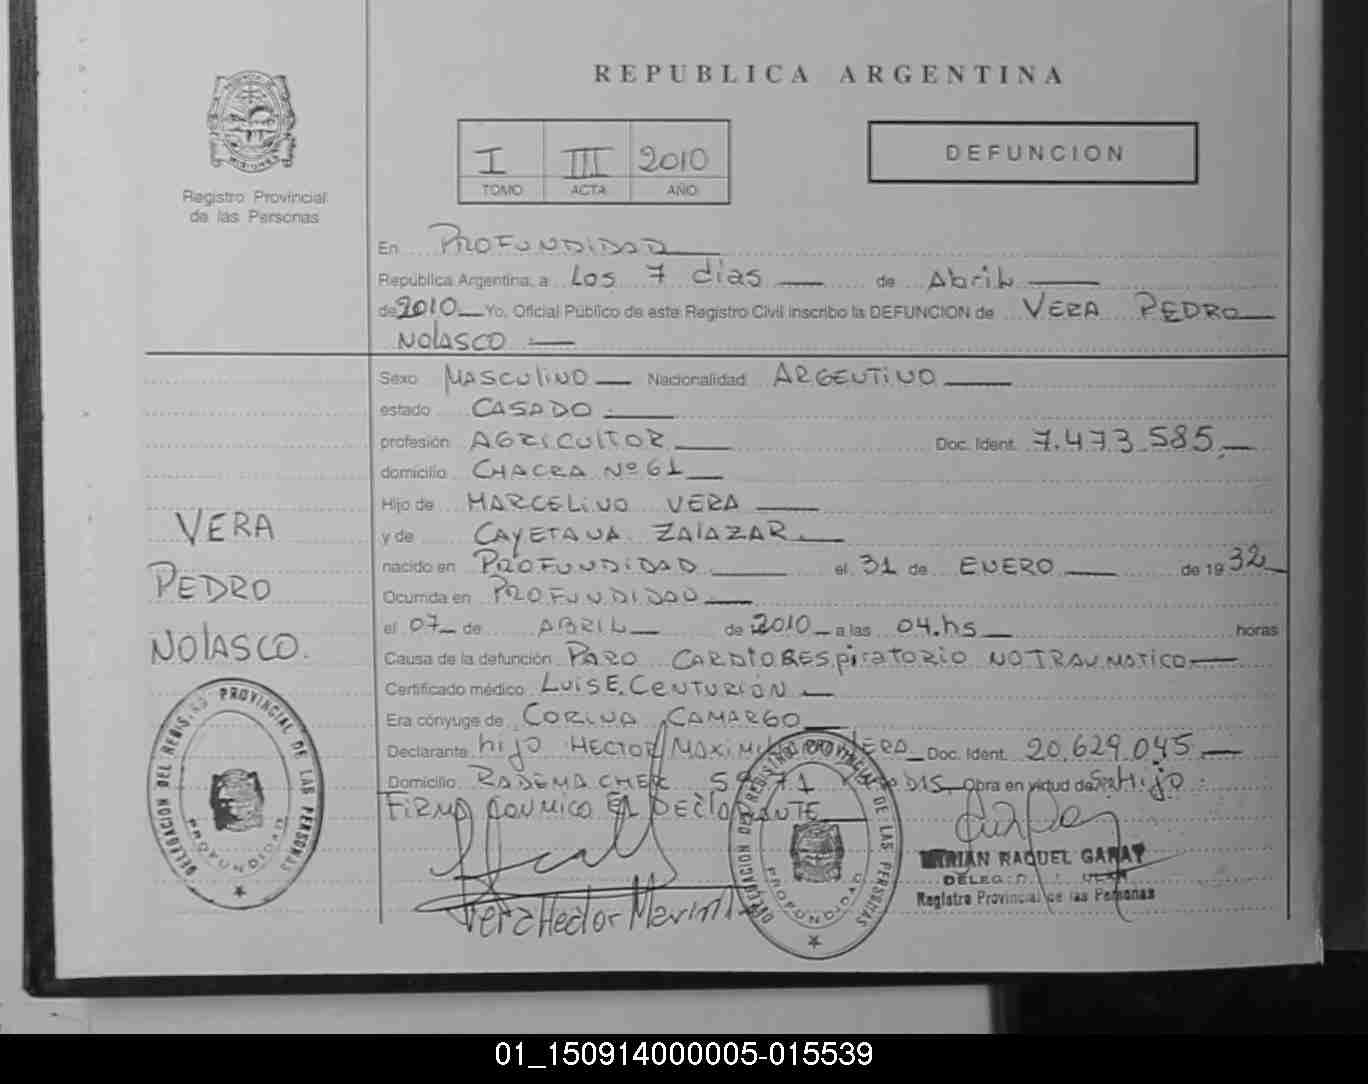 REPUBLICA ARGENTINA
MISIONES
Registro Provincial
de las Personas
I III 2010
TOMO ACTA AÑO
DEFUNCION
En PROFUNDIDAD
República Argentina, a Los 7 dias de Abril
de 2010 Yo, Oficial Público de este Registro Civil inscribo la DEFUNCION de VERA PEDRO
NOLASCO
Sexo MASCULINO Nacionalidad ARGENTINO
estado CASADO
profesión AGRICULTOR Doc. Ident. 7.473.585
domicilio CHACRA Nº 61
Hijo de MARCELINO VERA
y de CAYETANA ZALAZAR
nacido en PROFUNDIDAD el 31 de ENERO de 1932
Ocurrida en PROFUNDIDAD
el 07 de ABRIL de 2010 a las 04.hs horas
Causa de la defunción PARO CARDIORESPIRATORIO NO TRAUMATICO
Certificado médico LUIS E. CENTURIÓN
Era cónyuge de CORINA CAMARGO
Declarante hijo HECTOR VERA Doc. Ident. 20.629.045
Domicilio RADEMACHER Obra en virtud de Su Hijo
FIRMA CONMIGO EL DECLARANTE
VERA
PEDRO
NOLASCO.
DELEGACION DEL REGISTRO PROVINCIAL DE LAS PERSONAS
PROFUNDIDAD
Vera Hector
DELEGACION DEL REGISTRO PROVINCIAL DE LAS PERSONAS
PROFUNDIDAD
MIRIAN RAQUEL GARAY
Registro Provincial de las Personas
01_150914000005-015539